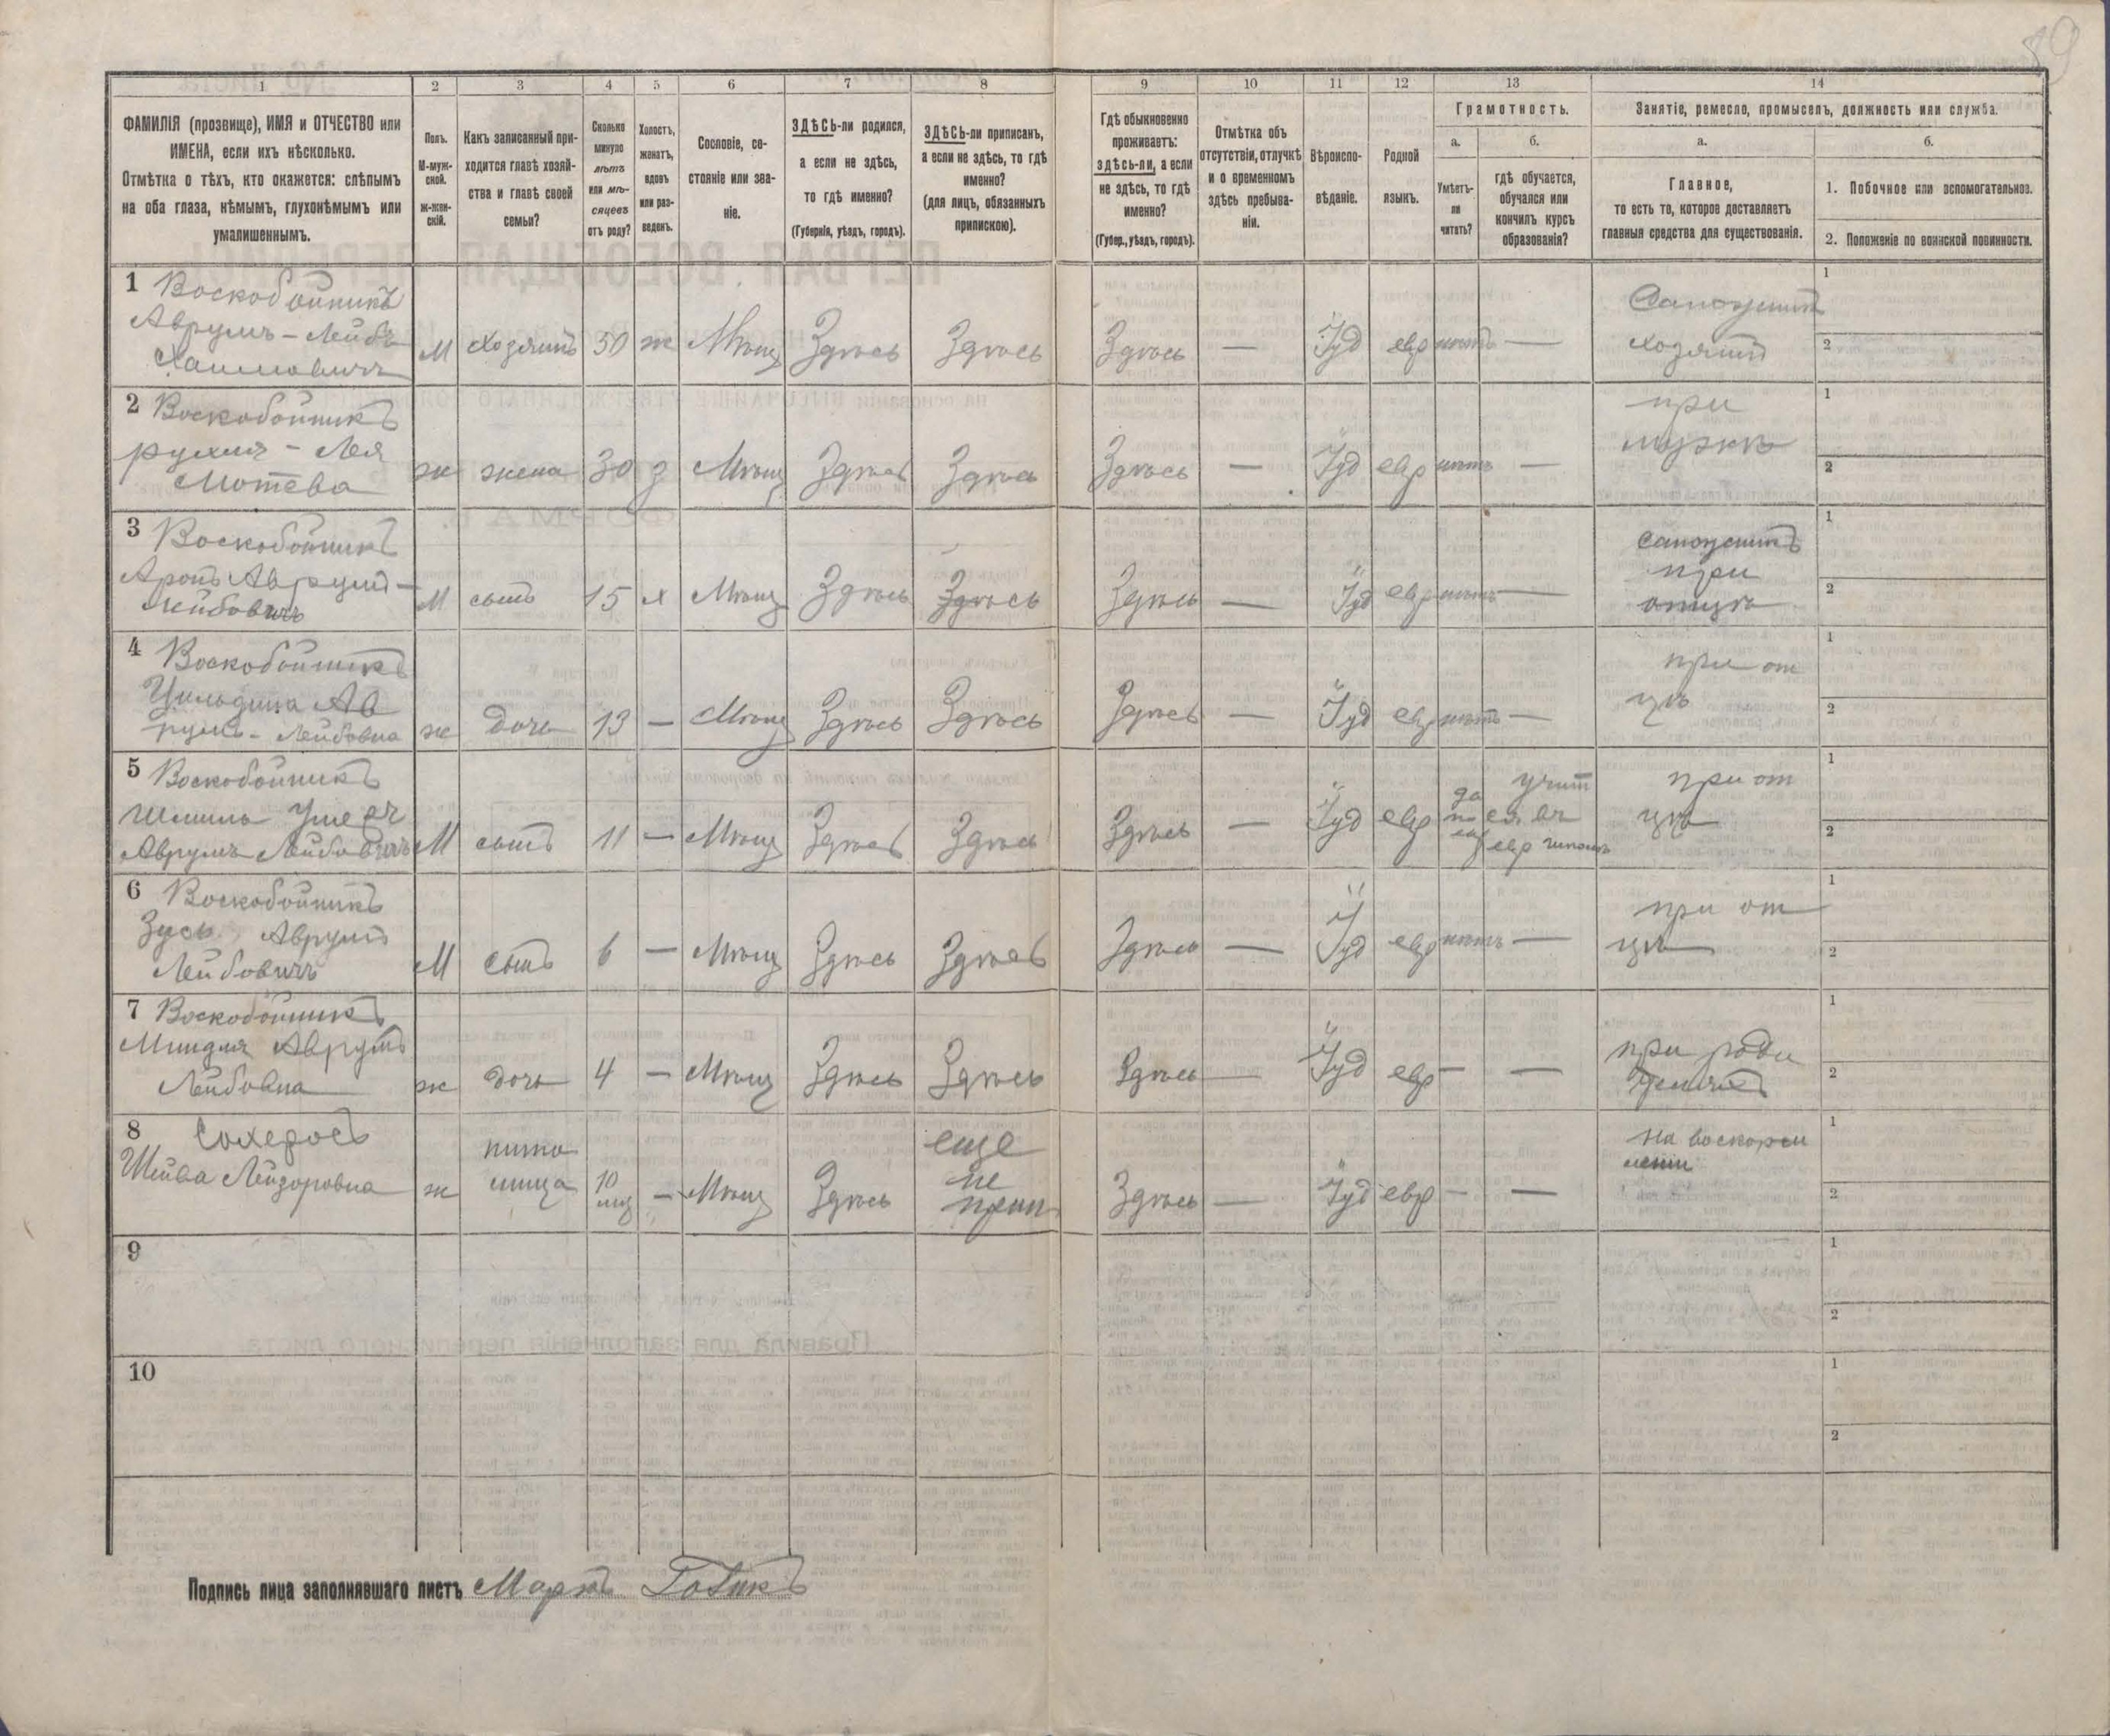 89
1 2 3 4 5 6 7 8 9 10 11 12 13 14
ФАМИЛІЯ (прозвище), ИМЯ и ОТЧЕСТВО или
ИМЕНА, если ихъ нѣсколько.
Отмѣтка о тѣхъ, кто окажется: слѣпымъ
на оба глаза, нѣмымъ, глухонѣмымъ или
умалишеннымъ.
Полъ.
М-муж-
ской.
ж-жен-
скій.
Какъ записанный при-
ходится главѣ хозяй-
ства и главѣ своей
семьи?
Сколько
минуло
лѣтъ
или мѣ-
сяцевъ
отъ роду?
Холостъ,
женатъ,
вдовъ
или раз-
веденъ.
Сословіе, со-
стояніе или зва-
ніе.
ЗДѢСЬ-ли родился,
а если не здѣсь,
то гдѣ именно?
(Губернія, уѣздъ, городъ).
ЗДѢСЬ-ли приписанъ,
а если не здѣсь, то гдѣ
именно?
(для лицъ, обязанныхъ
припискою).
Гдѣ обыкновенно
проживаетъ:
здѣсь-ли, а если
не здѣсь, то гдѣ
именно?
(Губер., уѣздъ, городъ).
Отмѣтка объ
отсутствіи, отлучкѣ
и о временномъ
здѣсь пребыва-
ніи.
Вѣроиспо-
вѣданіе.
Родной
языкъ.
Грамотность.
а.
Умѣетъ-
ли
читать?
б.
гдѣ обучается,
обучался или
кончилъ курсъ
образованія?
Занятіе, ремесло, промыселъ, должность или служба.
а.
Главное,
то есть то, которое доставляетъ
главныя средства для существованія.
б.
1. Побочное или вспомогательное.
2. Положеніе по воинской повинности.
1 Воскобойникъ
Аврумъ-Лейбъ
Хаимовичъ
М хозяинъ 30 ж Мѣщ Здѣсь Здѣсь Здѣсь — Іуд евр нѣтъ —
Сапожникъ
хозяинъ
1
2
2 Воскобойникъ
рухля - Лея
Мотева
ж жена 30 з Мѣщ Здѣсь Здѣсь Здѣсь — Іуд евр нѣтъ —
при
мужѣ
1
2
3 Воскобойникъ
Аронъ Аврумъ-
Лейбовичъ
М сынъ 15 х Мѣщ Здѣсь Здѣсь Здѣсь — Іуд евр нѣтъ —
сапожникъ
при
отцѣ
1
2
4 Воскобойникъ
Ав
румъ-Лейбовна
ж дочь 13 — Мѣщ Здѣсь Здѣсь Здѣсь — Іуд евр нѣтъ —
при от
цѣ
1
2
5 Воскобойникъ
Шмиль Ушеръ
Аврумъ Лейбовичъ
М сынъ 11 — Мѣщ Здѣсь Здѣсь Здѣсь — Іуд евр
да
по
евр
учит
ся въ
евр школѣ
при от
цѣ
1
2
6 Воскобойникъ
Зусь Аврумъ
Лейбовичъ
М сынъ 6 — Мѣщ Здѣсь Здѣсь Здѣсь — Іуд евр нѣтъ —
при от
цѣ
1
2
7 Воскобойникъ
Миндля Аврумъ
Лейбовна
ж дочь 4 — Мѣщ Здѣсь Здѣсь Здѣсь — Іуд евр — —
при роди
теляхъ
1
2
8 Сохеросъ
Шейва Лейзоровна
ж
пито
мица
10
мц
— Мѣщ Здѣсь
еще
не
прип
Здѣсь — Іуд евр — —
на воскорм
лении
1
2
9
1
2
10
1
2
Подпись лица заполнявшаго листъ Маркъ Готикъ